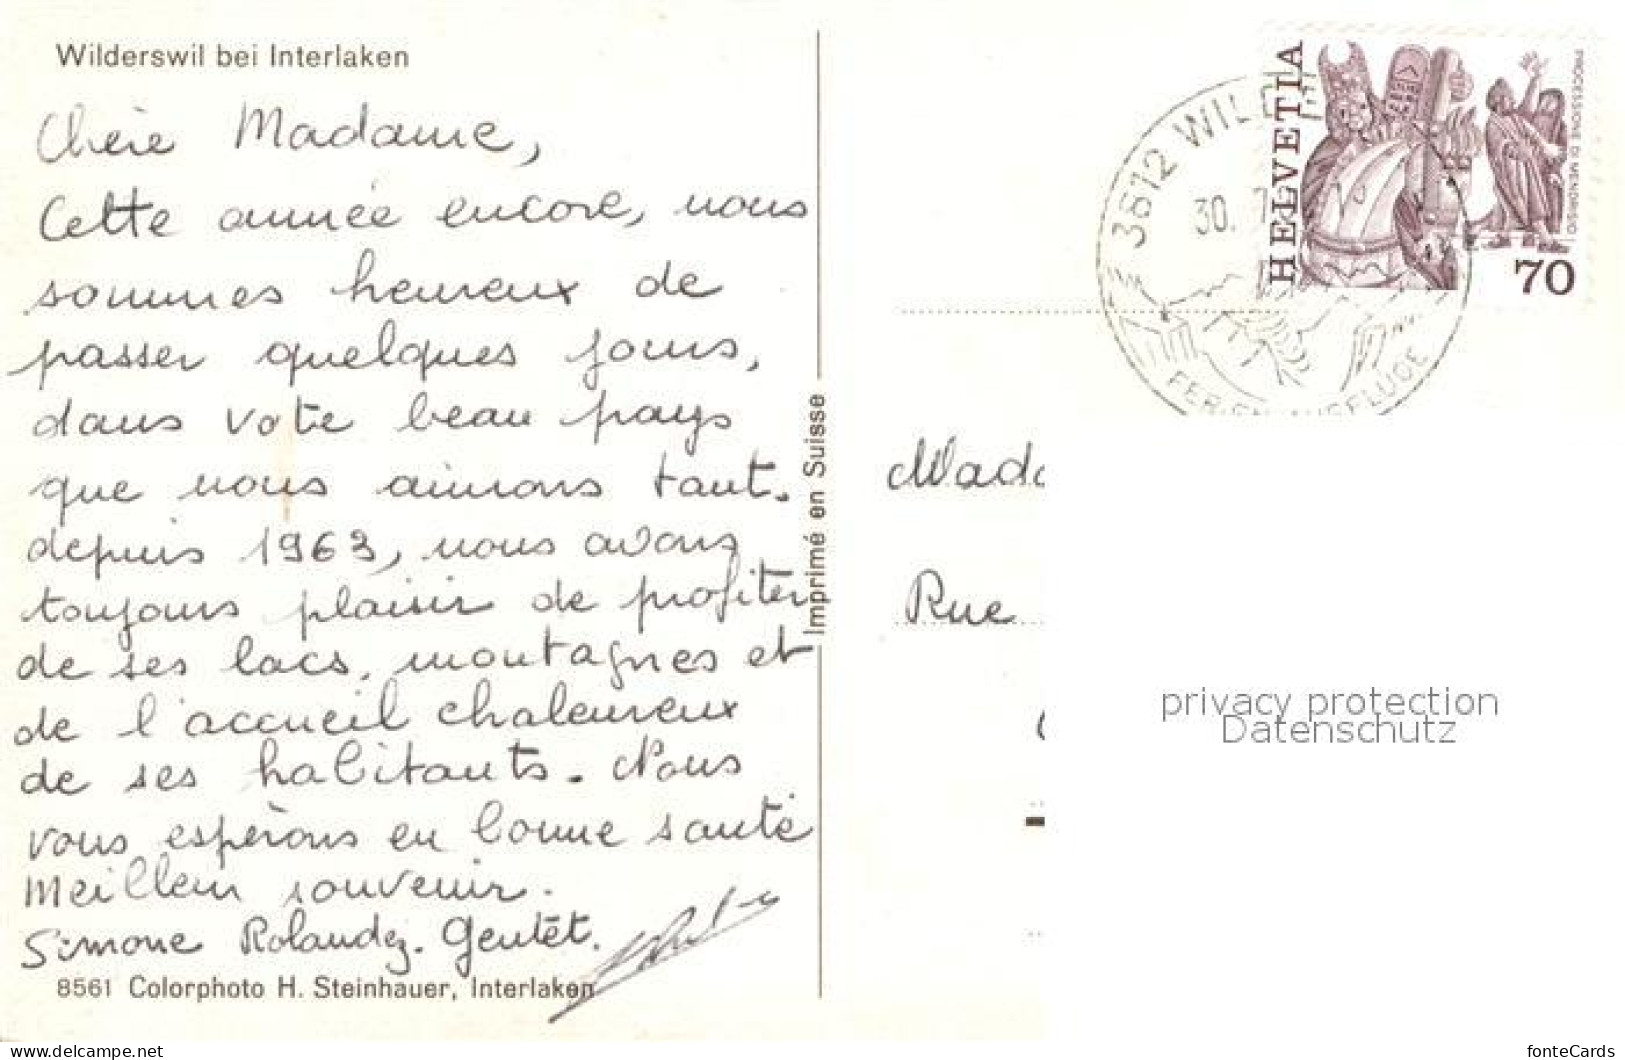 Wilderswil bei Interlaken
Chère Madame,
Cette année encore, nous
sommes heureux de
passer quelques jours,
dans vote beau pays
que nous aimons tant.
depuis 1963, nous avons
toujours plaisir de profiter
de ses lacs, montagnes et
de l'accueil chaleureux
de ses habitants. Nous
vous espérons en bonne santé
Meilleur souvenir.
Simone Gentet.
8561 Colorphoto H. Steinhauer, Interlaken
Imprimé en Suisse
3812 WILDE
30.
FERIEN AUSFLÜGE
HELVETIA
PROCESSIONE DI MENDRISIO
70
Mada
Rue
privacy protection
Datenschutz
fonteCards
www.delcampe.net